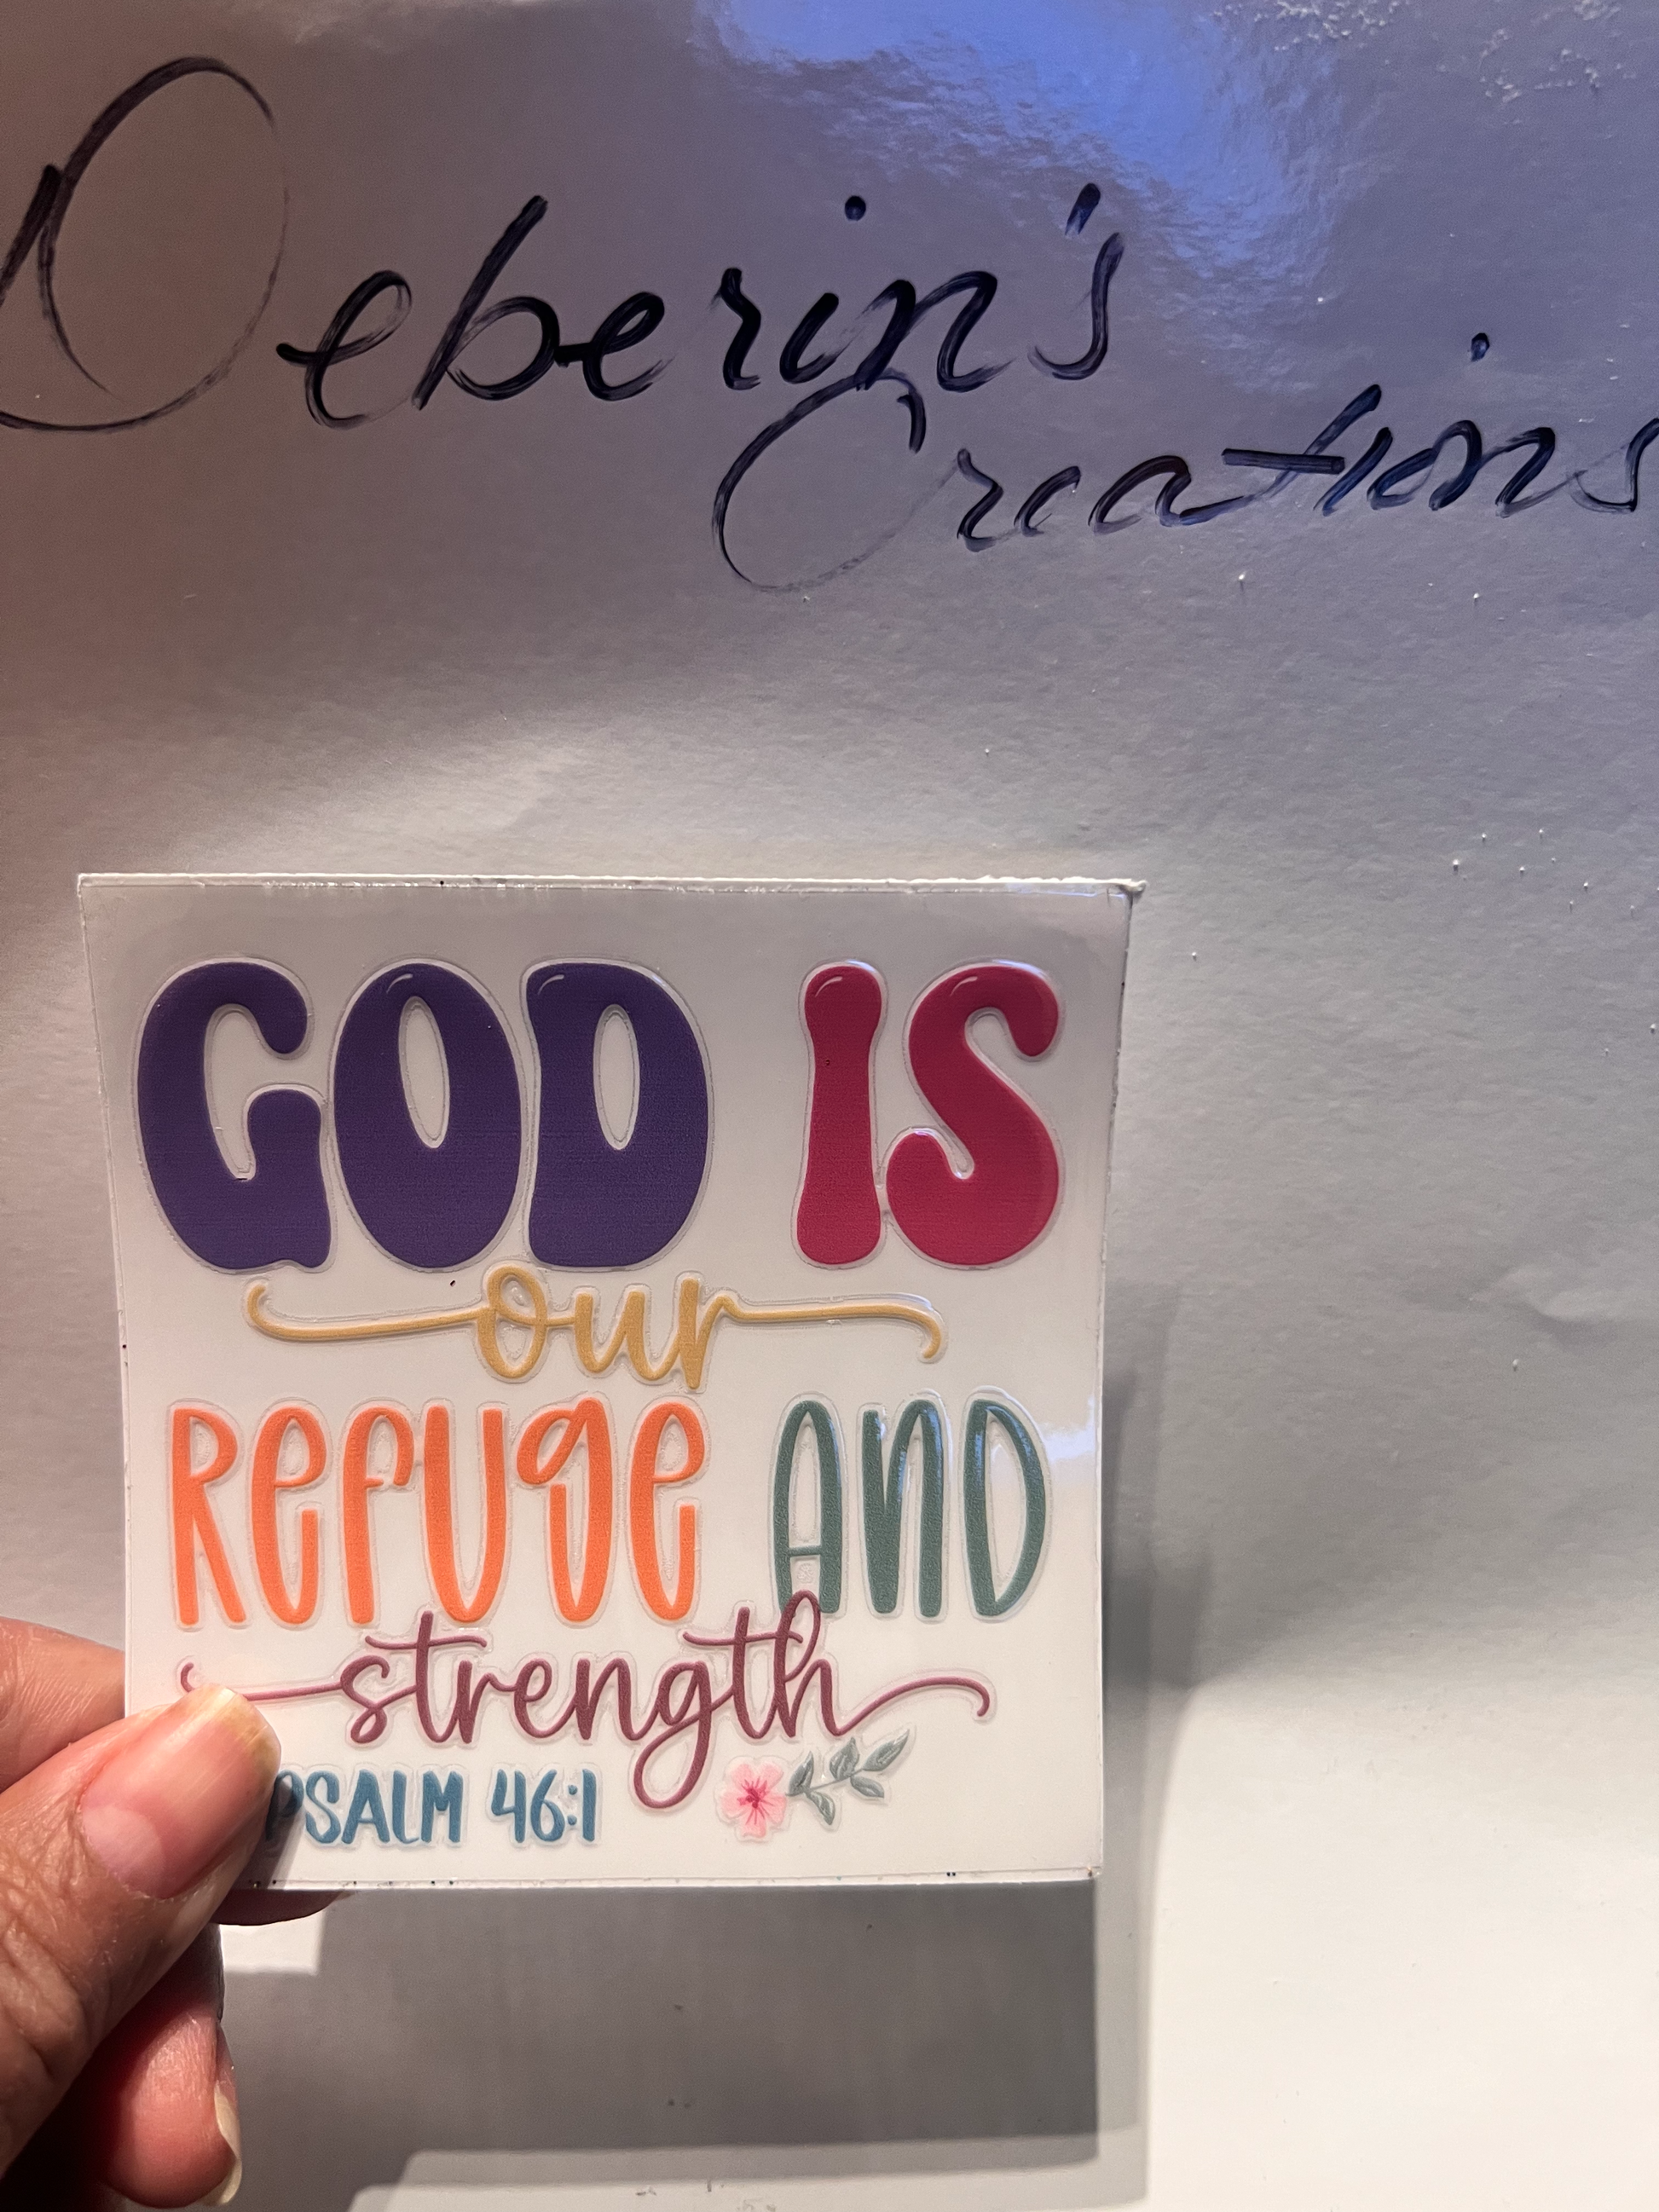 Deberin's
Creations
GOD IS
our
Refuge AND
strength
PSALM 46:1